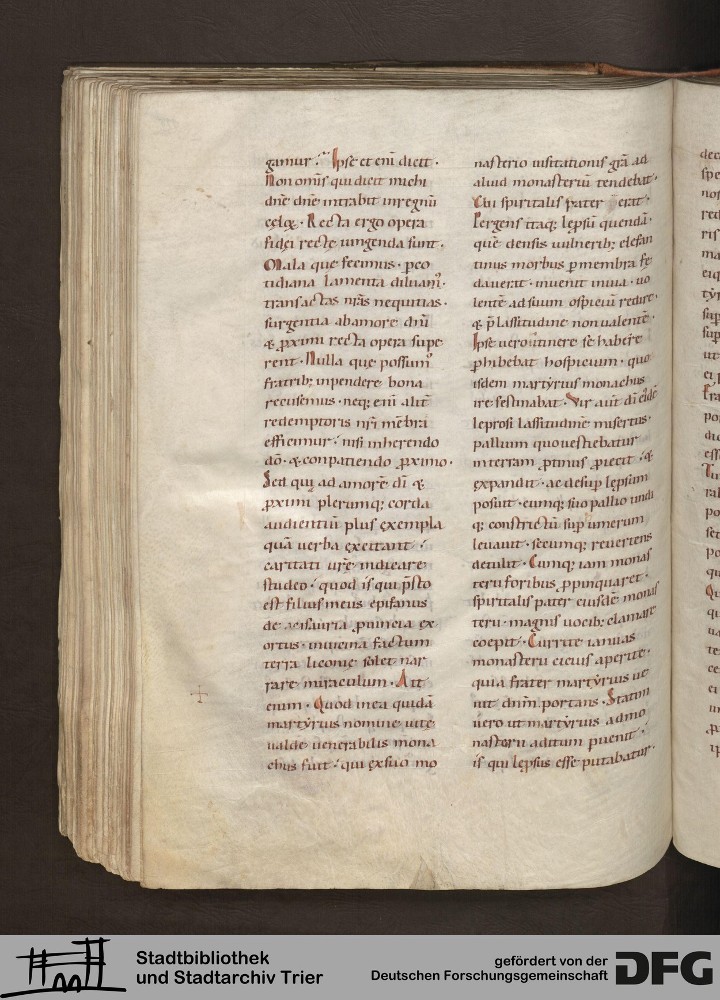 gamur. Ipse et enī dicit.
Non omnis qui dicit michi
dn̄e dn̄e intrabit in regnū
cęloꝝ. Recta ergo opera
fidei recte iungenda sunt.
Mala que fecimus. ꝑ co
tidiana lamenta diluam᷒.
transactas nr̄as nequitias.
surgentia ab amore dn̄i
& ꝓximi recta opera supe
rent. Nulla que possum᷒
fratrib; inpendere bona
recusemus. neq; enī alit̄
redemptoris nr̄i mēbra
efficimur. nisi inherendo
dō. & conpatiendo ꝓximo.
Sed quia ad amorē dī &
ꝓximi plerumq; corda
audientiū plus exempla
quā verba excitant.
caritati vr̄e indicare
studeo. quod is qui p̄sto
est filius meus epifanus
de
ortus. in uicina factum
terra liconie solet nar
rare miraculum. Ait
enim. Quod in ea quidā
martyrius nomine uite
ualde uenerabilis mona
chus fuit. qui ex suo mo
nasterio uisitationis grā ad
aliud monasteriū tendebat.
Cui spiritalis pater erat.
Pergens itaq; lepsū quendā.
quē densis uulnerib; elefan
tinus morbus ꝑ membra fę
dauerat. inuenit in uia. uo
lentē ad suum ospiciū redire.
& p̄ lassitudine non ualentē.
Ipse uero itinere se habere
ꝑhibebat hospicium. quo
isdem martyrius monachus
ire festinabat. Vir aut̄ dī eiusdē
leprosi lassitudinē misertus.
pallium quo uestiebatur
in terram ꝓtinus ꝓiecit. &
expandit. ac desup lepsum
posuit. eumq; suo pallio undi
q; constrictū sup umerum
leuauit. secumq; reuertens
detulit. Cumq; iam monas
terii foribus ꝓpinquaret.
spiritalis pater eiusdē monas
terii. magnis uocib; clamare
coepit. Currite ianuas
monasterii cicius aperite.
quia frater martyrius ue
nit dnm̄ portans. Statim
uero ut martyrius ad mo
nasterii aditum puenit.
is qui lepsus esse putabatur.
Stadtbibliothek
und Stadtarchiv Trier
gefördert von der
Deutschen Forschungsgemeinschaft
DFG